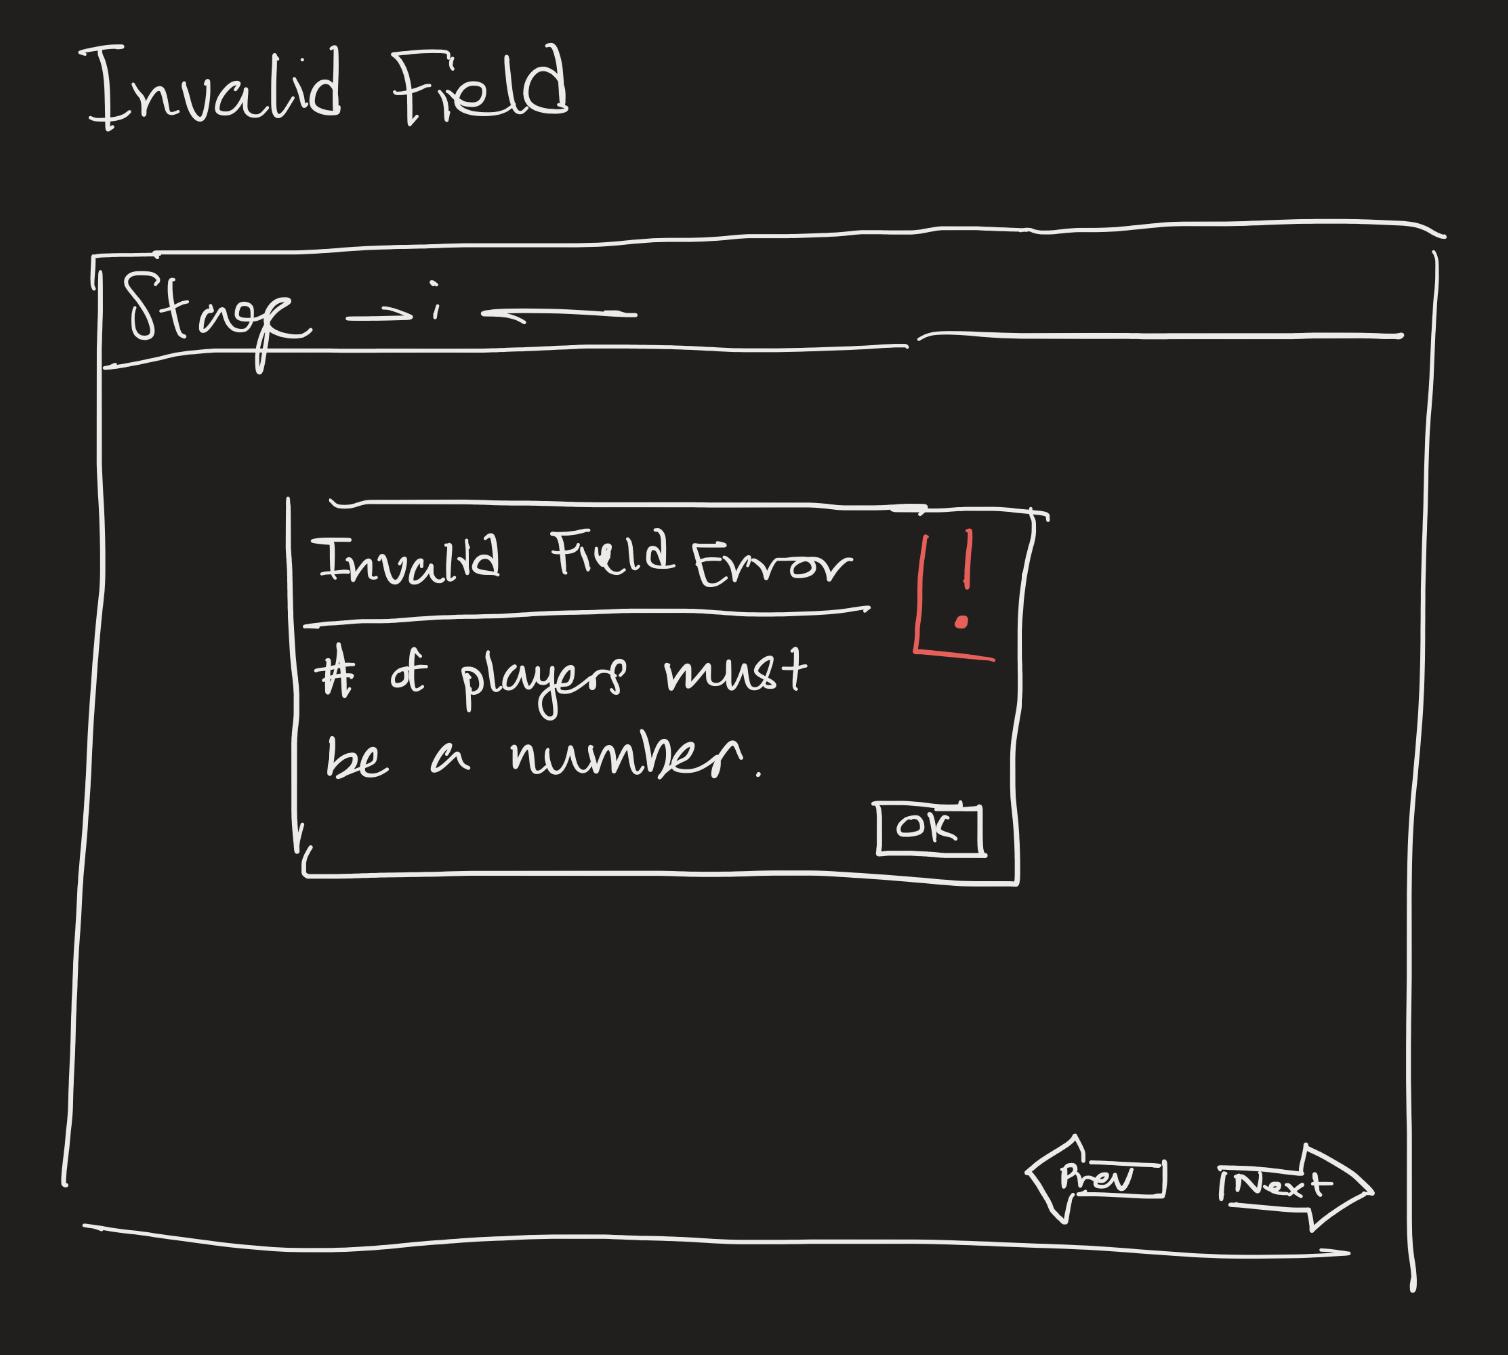 Invalid Field
Stage → i ←
Invalid Field Error
!
# of players must
be a number.
OK
Prev
Next